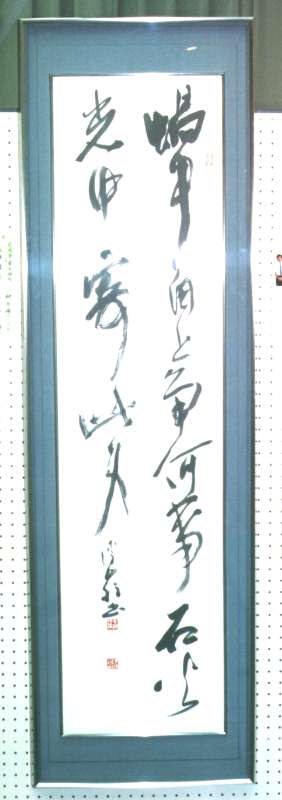 蝸牛角上争何事石火
光中寄此身